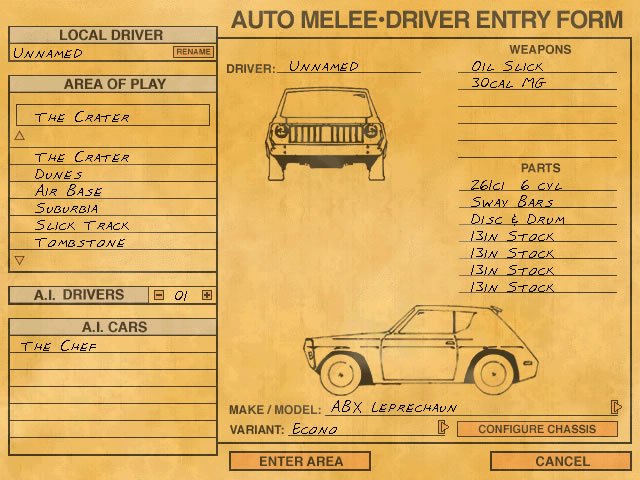 AUTO MELEE•DRIVER ENTRY FORM
LOCAL DRIVER
UNNAMED
RENAME
AREA OF PLAY
THE CRATER
THE CRATER
DUNES
AIR BASE
SUBURBIA
SLICK TRACK
TOMBSTONE
A.I. DRIVERS
01
A.I. CARS
THE CHEF
DRIVER: UNNAMED
WEAPONS
OIL SLICK
30CAL MG
PARTS
261CI 6 CYL
SWAY BARS
DISC & DRUM
13IN STOCK
13IN STOCK
13IN STOCK
13IN STOCK
MAKE / MODEL: ABX LEPRECHAUN
VARIANT: ECONO
CONFIGURE CHASSIS
ENTER AREA
CANCEL